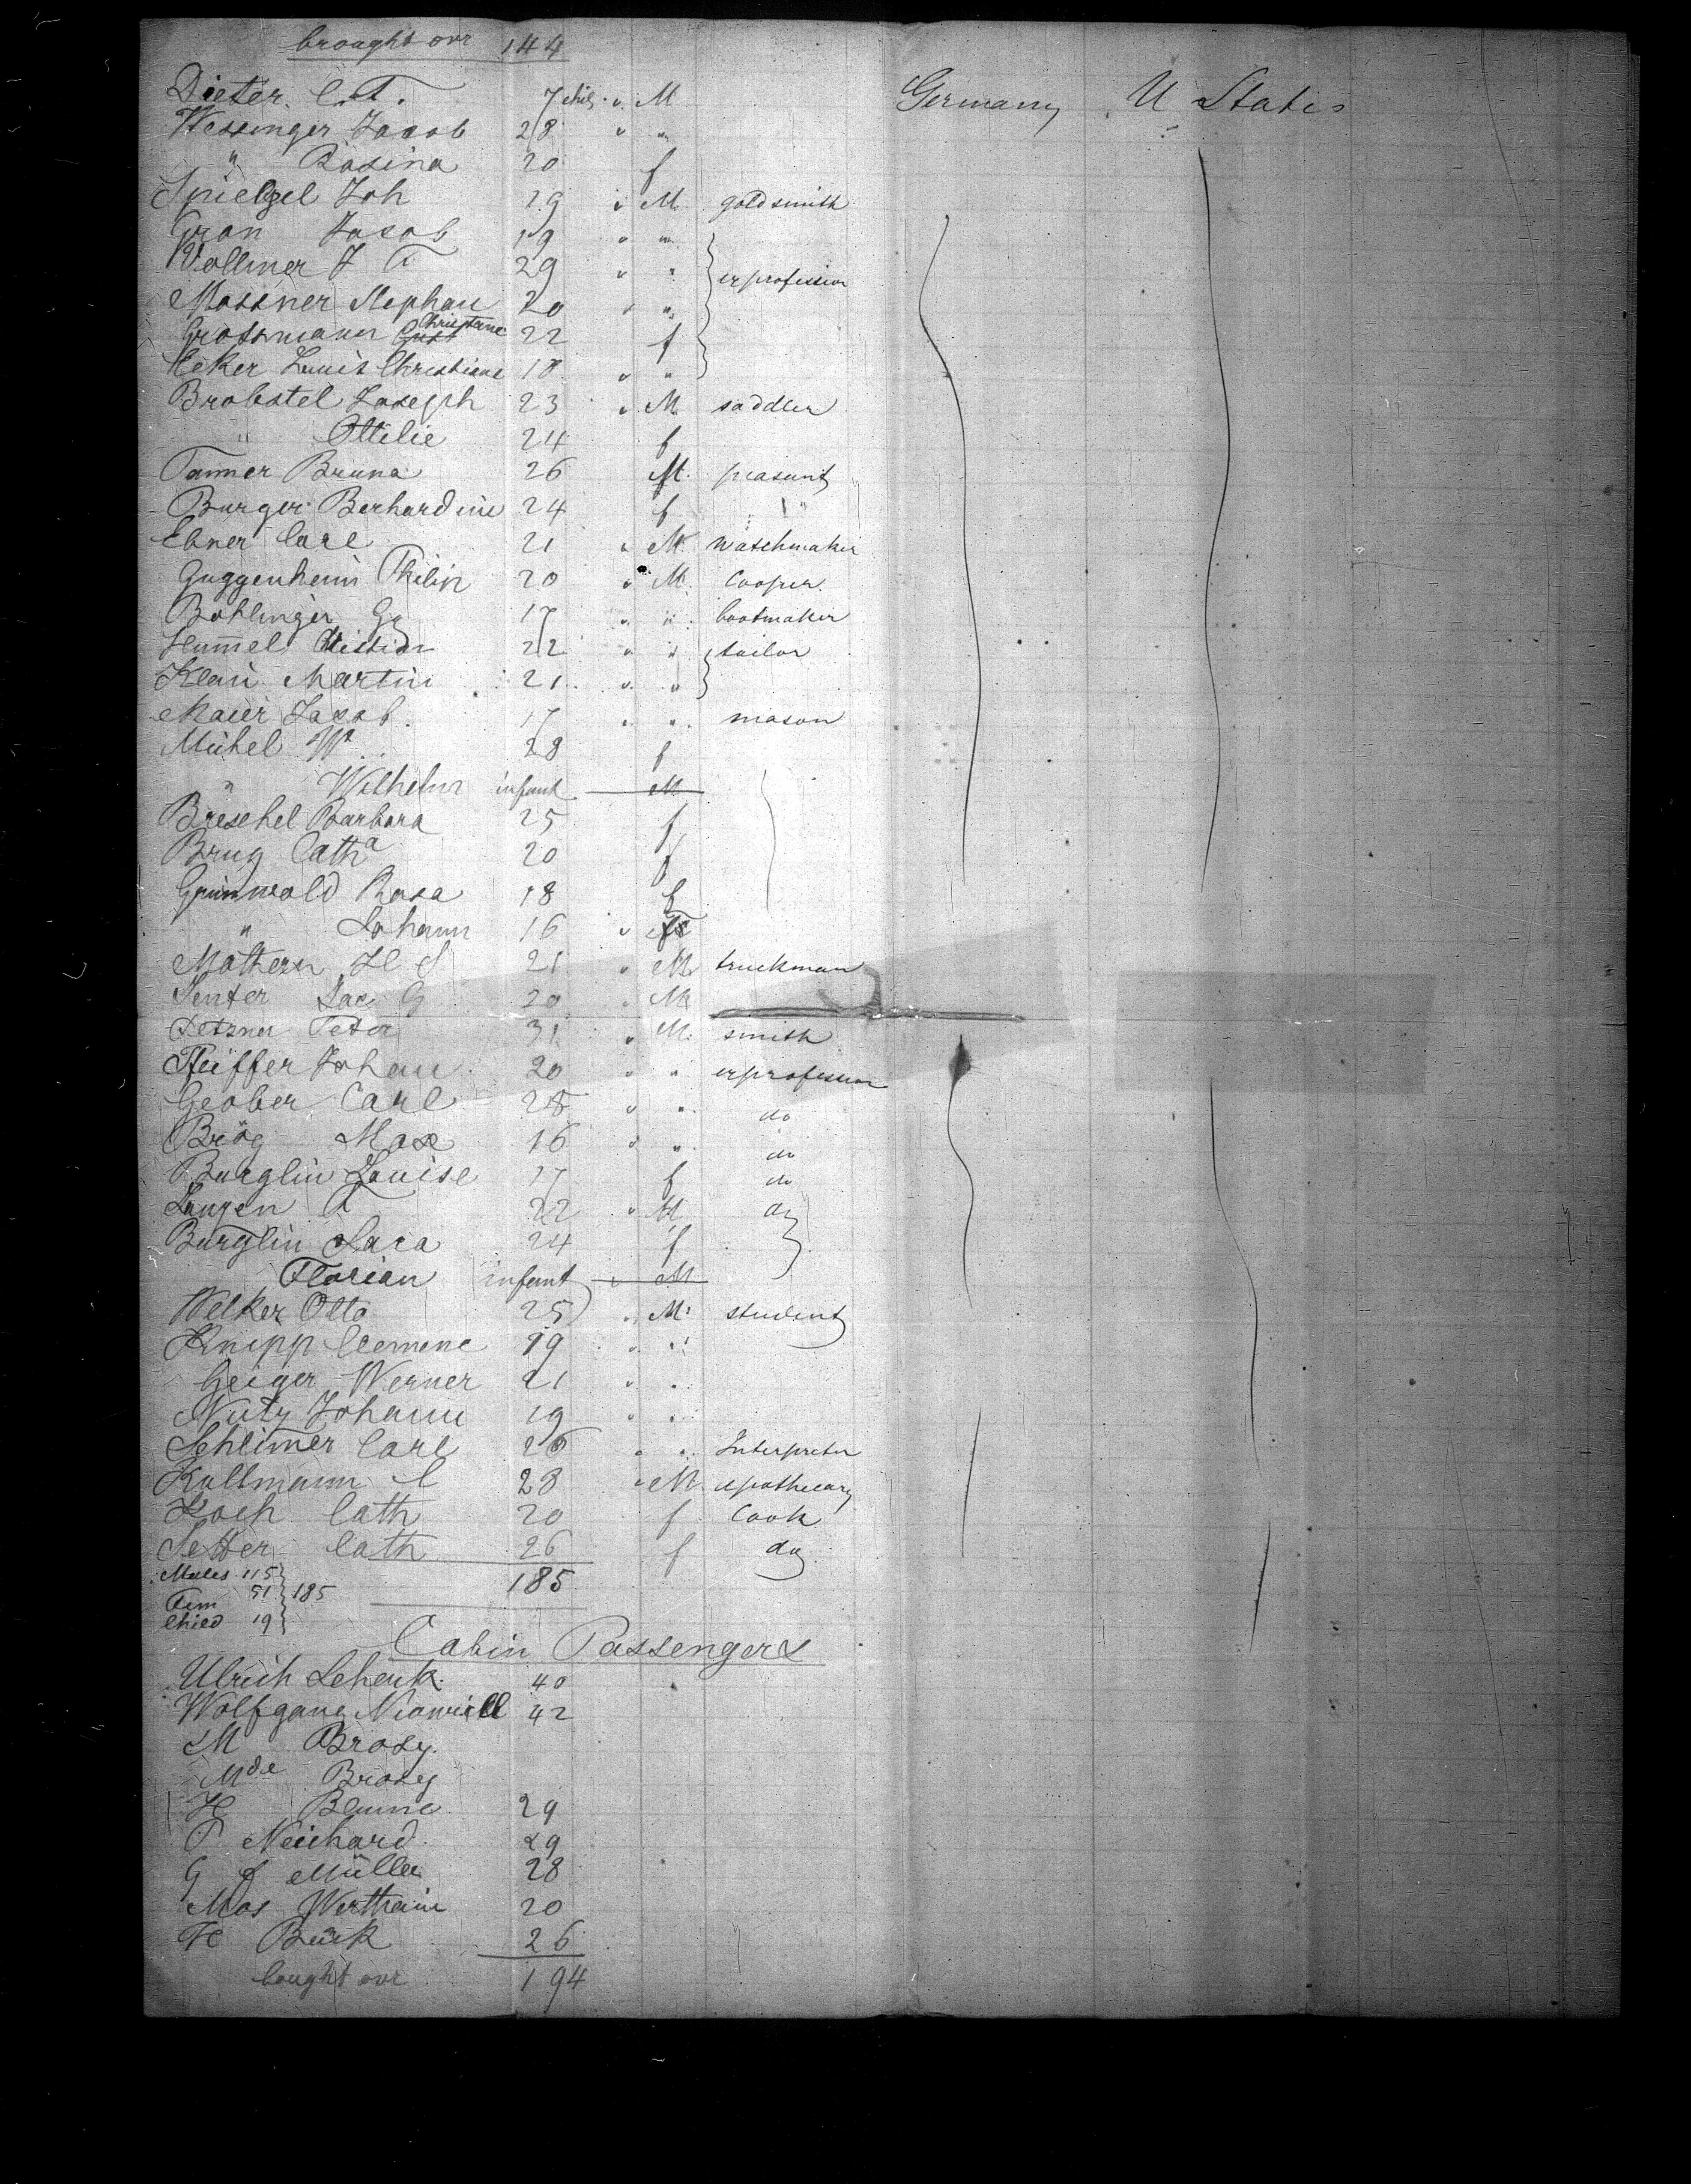 brought ovr 144
Dieter. C. F. 7 chil. " M Germany U States
Wessinger Jacob 28 " "
" Rosina 20 f
Spielgel Joh 29 " M goldsmith
Gran Jacob 19 " "
Vollmer J F 29 " " exprofession
Mossner Stephan 20 " "
Grossmann Christane 22 f
Eeker Louis Christiane 18 " "
Brobstel Joseph 23 " M saddler
" Ottilie 24 f
Tanner Bruna 26 M. peasant
Burger Berhardine 24 f "
Ebner Carl 21 " M watchmaker
Guggenheim Philip 20 " M. Cooper.
Bohlinger Gg 17 " " bootmaker
Hummel 22 " " tailor
Klein Martin 21 " "
Maier Jacob. 17 " " mason
Michel Wa 28 f
" Wilhelm infant M
Breschel Barbara 25 f
Brug Catha 20 f
Grünwold Rosa 18 f
" Johann 16 "
Mathern H S 21 " M truckman
Senter Jac G 20 " M
Petzner Peter 31 " M. smith
Pfeiffer Johan 20 " " exprofession
Geober Carl 28 " " do
Brög Max 16 " " do
Burglin Louise 17 f do
Langen F 22 " M do
Burglin Sara 24 f
Florian infant " M
Welker Otto 25 " M: student
Knipp Clemenc 19 " "
Geiger Werner 21 " "
Nutz Johann 19 " "
Schlimer Carl 26 " " Interpreter
Kollmann C 28 " M apothecary
Koch Cath 20 f Cook
Setter Cath 26 f do
Males 115 185
Fem 51 185
Child 19
Cabin Passengers
Ulrich Schenk. 40
Wolfgang 42
M Brosy.
Mde Brosy
H Blume 29
P Neichard. 29
G J Müller 28
Mos Wertheim 20
H Bück 26
bought ovr 194